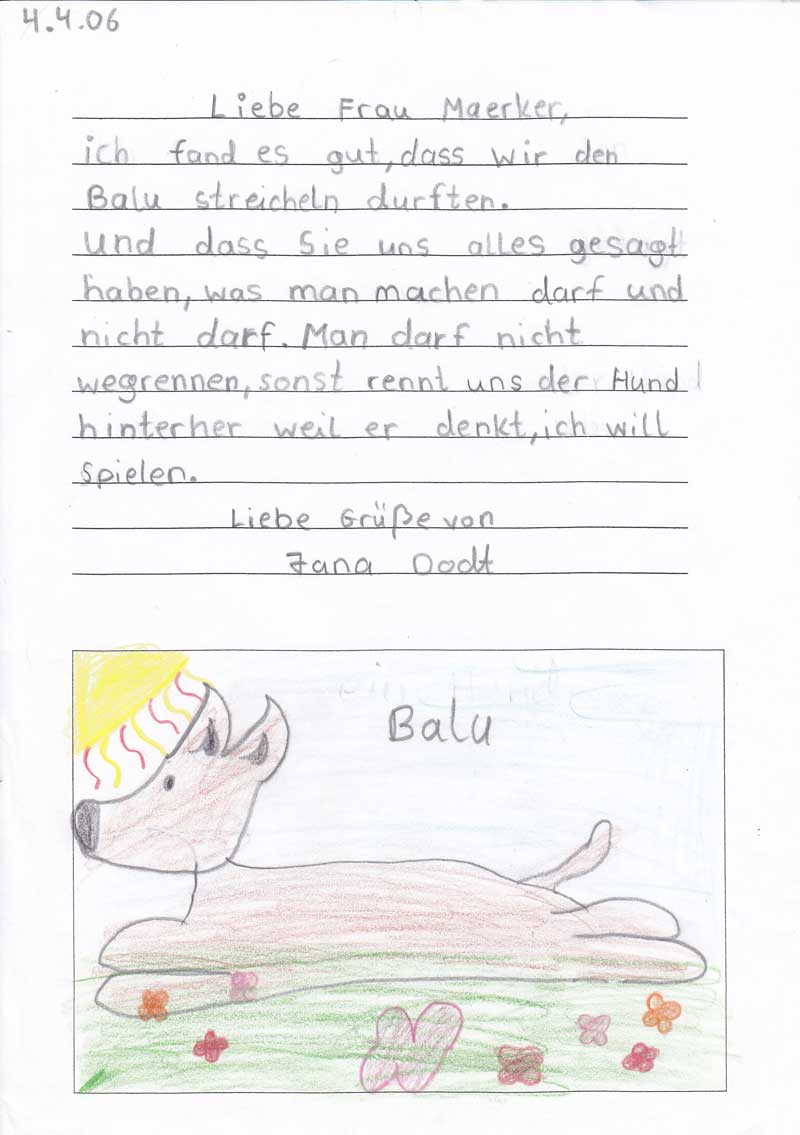 4.4.06
Liebe Frau Maerker,
ich fand es gut, dass wir den
Balu streicheln durften.
Und dass Sie uns alles gesagt
haben, was man machen darf und
nicht darf. Man darf nicht
wegrennen, sonst rennt uns der Hund
hinterher weil er denkt, ich will
spielen.
Liebe Grüße von
Jana Dodt
Balu